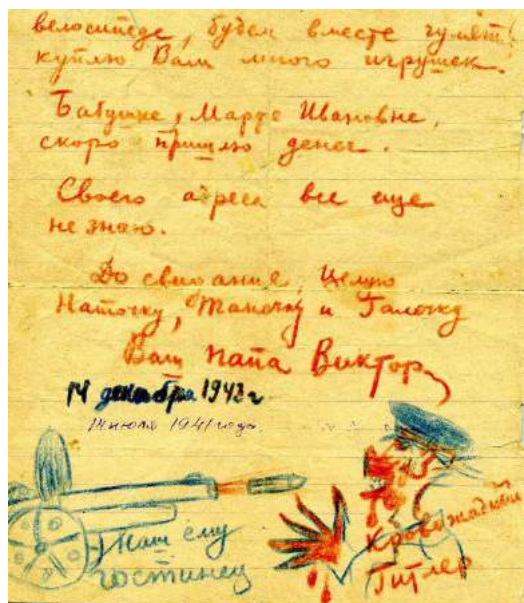 велосипеде, будем вместе гулять
куплю Вам много игрушек.
Бабушке, Марфе Ивановне,
скоро пришлю денег.
Своего адреса все еще
не знаю.
До свидание, Целую
Наточку, Таночку и Галочку
Ваш папа Виктор
14 декабря 1942 г
14 июля 1941 года.
Наш ему
гостинец
Кровожадный
Гитлер